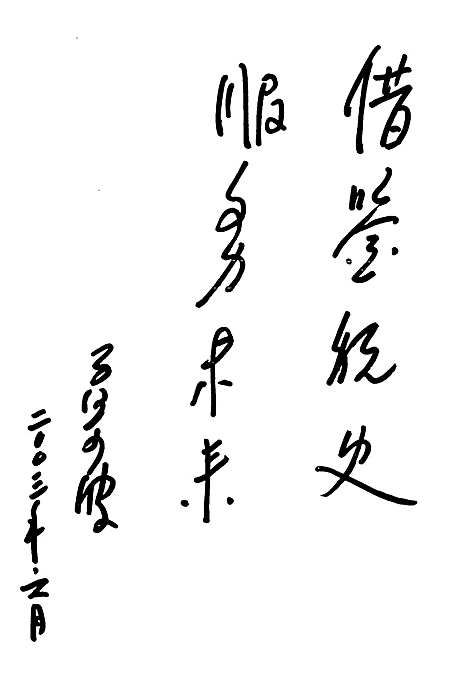 借鉴税史
服务未来
二〇〇三年六月